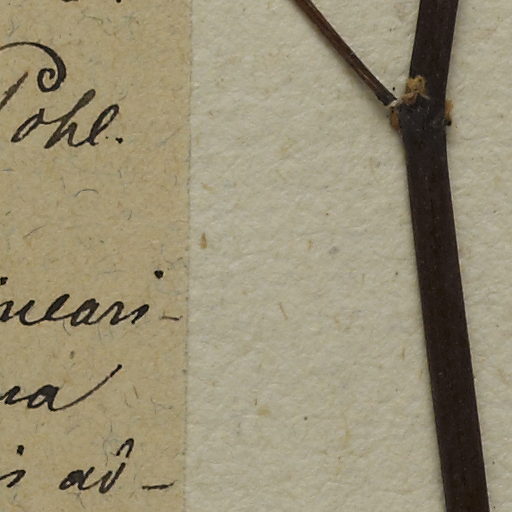 Pohl.
ineari-
na
is ad-